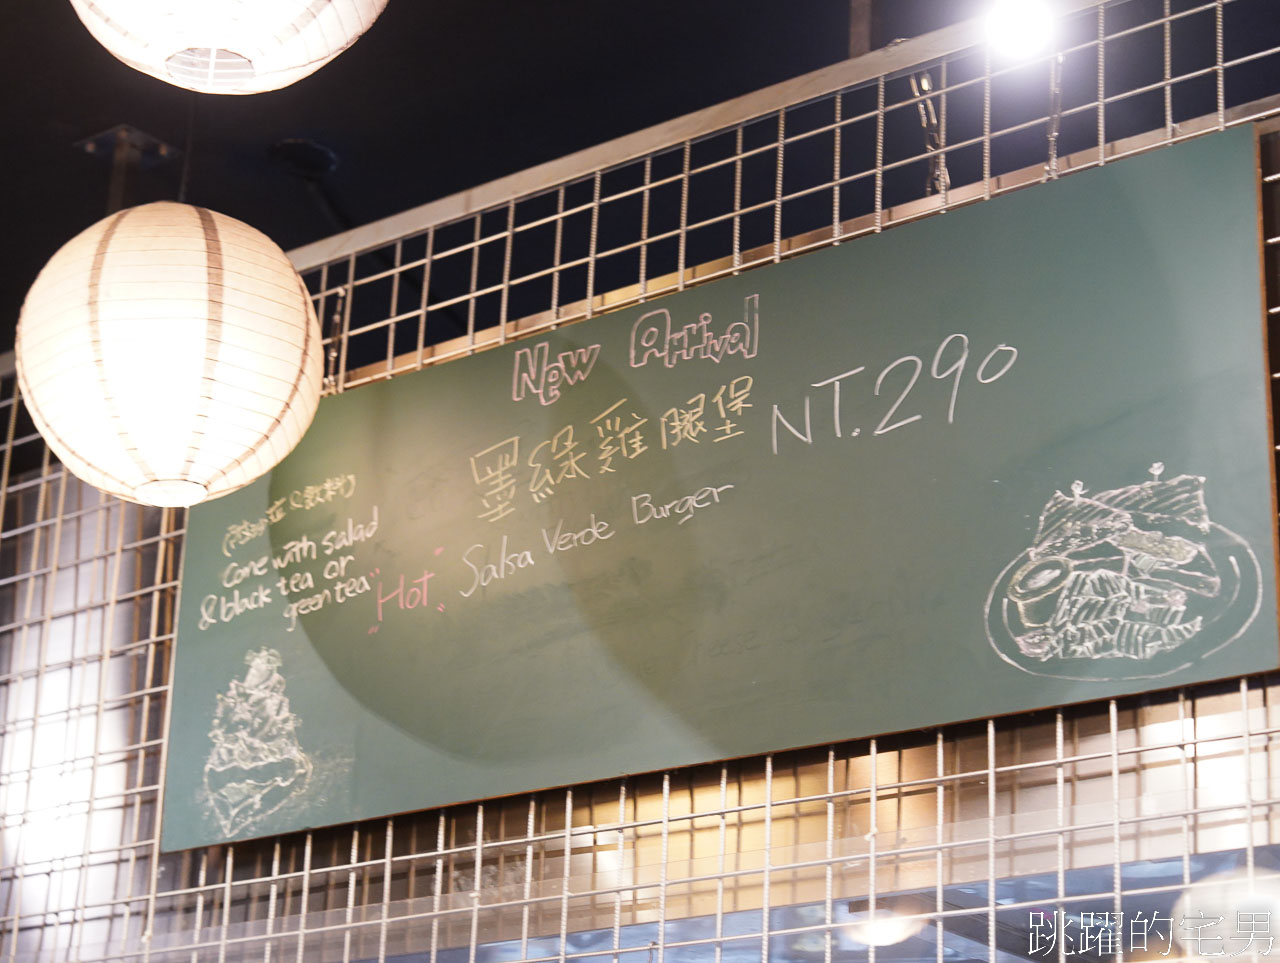 New Arrival
墨綠雞腿堡 NT.290
"Hot" Salsa Verde Burger
飲料)
Come with salad
& black tea or
green tea
跳躍的宅男